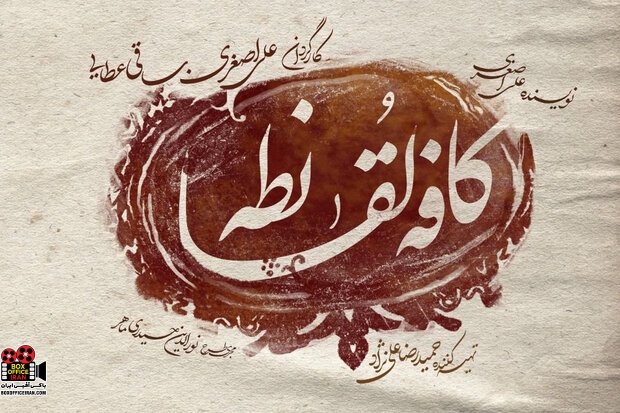 نویسنده علی اصغری
کارگردان علی اصغری . ساقی عطایی
کافه لقانطه
تهیه کننده حمیدرضا علی نژاد
مجری طرح نورالدین حیدری ماهر
BOX
OFFICE
IRAN
باکس آفیس ایران
BOXOFFICEIRAN.COM